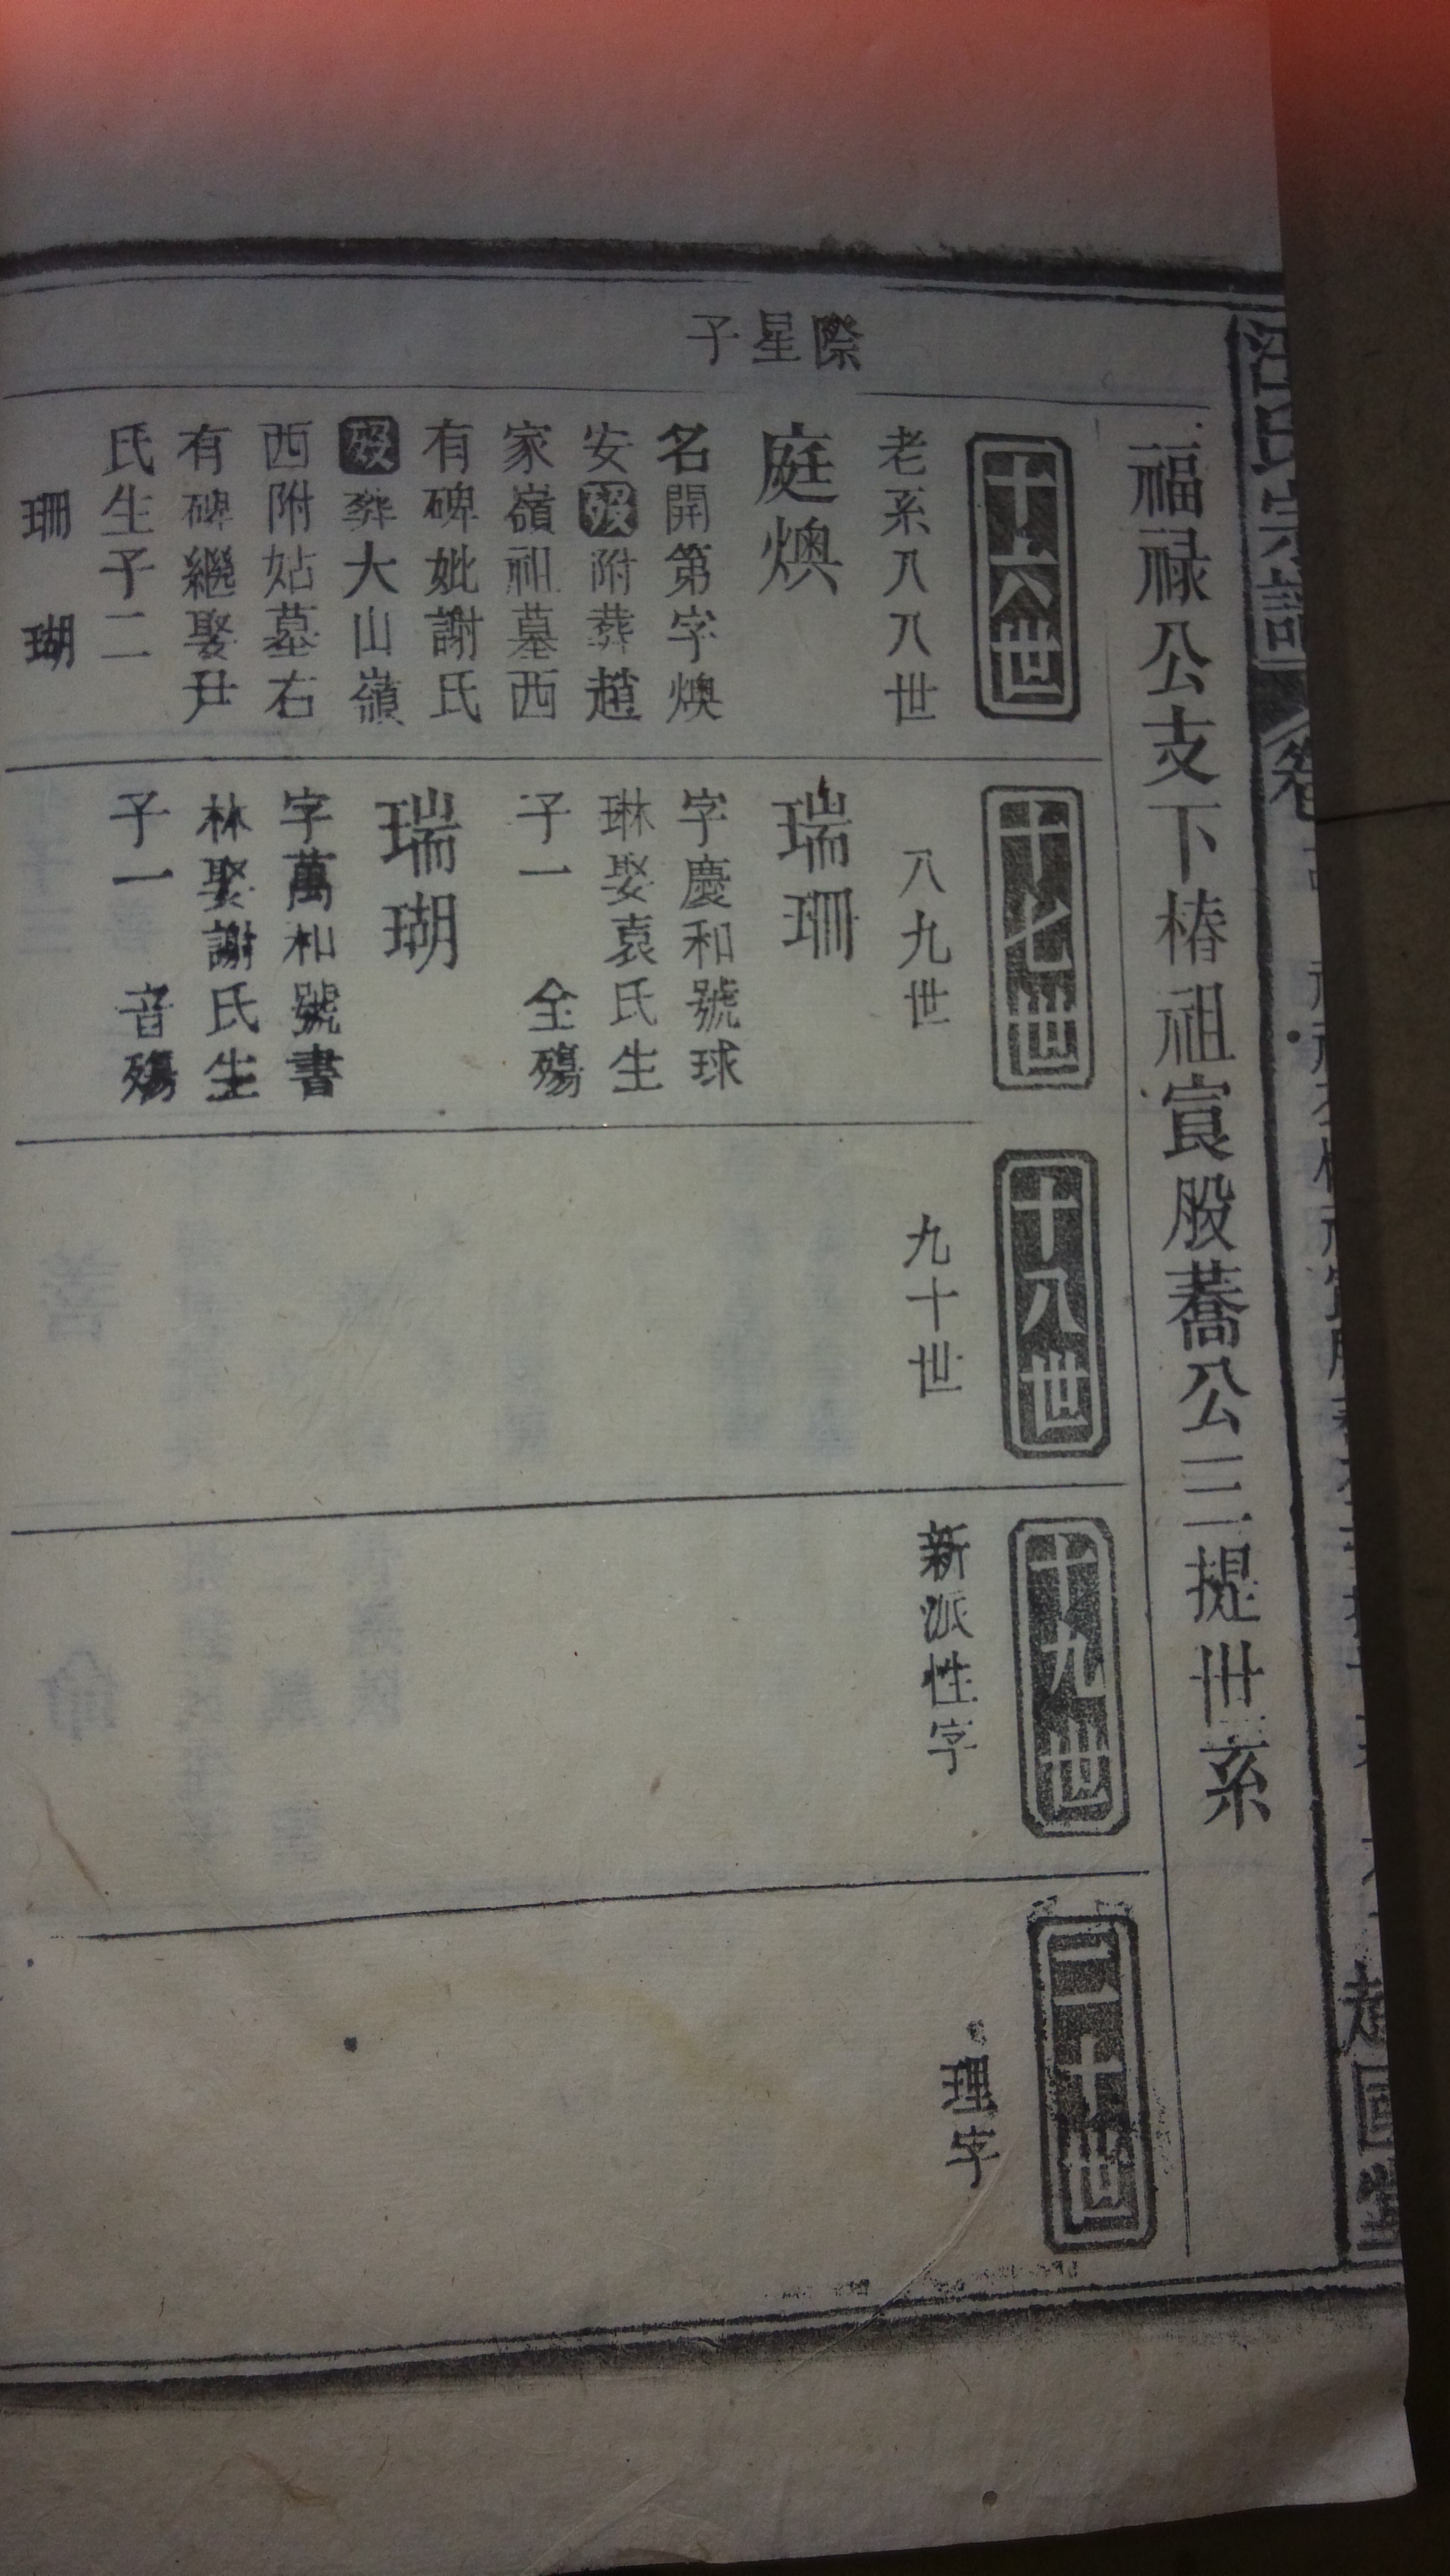 汪氏宗譜
卷
福禄公支下椿祖㝠股蕎公三提世系
十六世
十七世
十八世
十九世
二十世
老系八八世
八九世
九十世
新派性字
理字
際星子
庭燠
名開第字燠
安歿附葬趙
家嶺祖墓西
有碑妣謝氏
歿葬大山嶺
西附姑墓右
有碑繼娶尹
氏生子二
珊 瑚
瑞珊
字慶和號球
琳娶袁氏生
子一 全殤
瑞瑚
字萬和號書
林娶謝氏生
子一 音殤